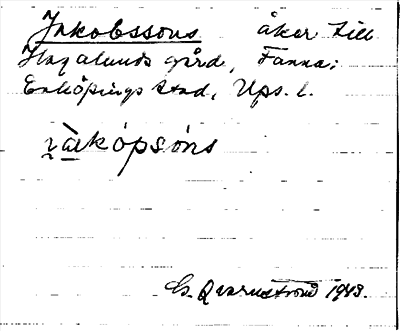 Jakobssons åker till
Hagalunds gård, Fanna;
Enköpings stad, Ups. l.
G. Qvarnström 1943.